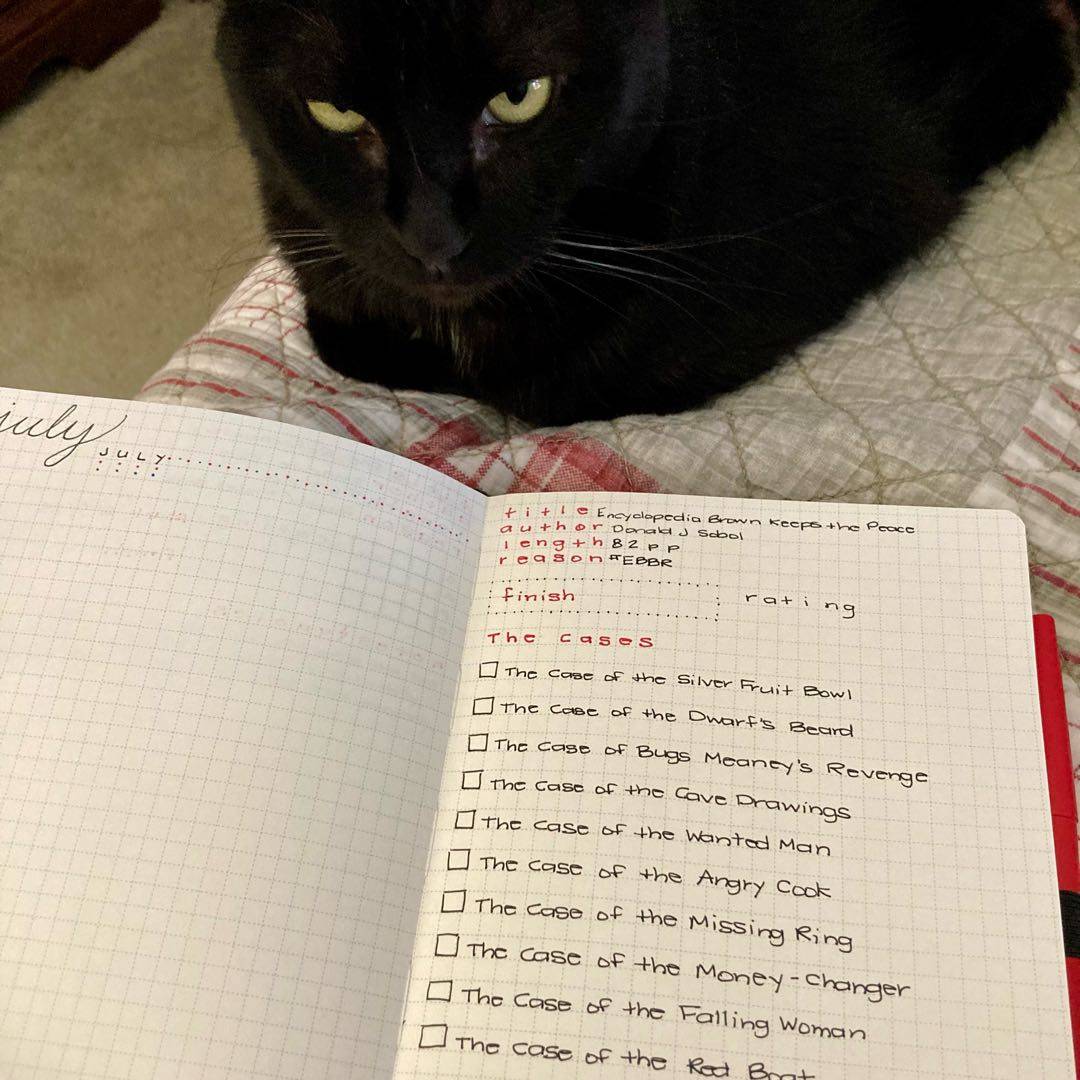 july
JULY
title Encyclopedia Brown Keeps the Peace
author Donald J Sobol
length 82 pp
reason #EBBR
finish
rating
The cases
The Case of the Silver Fruit Bowl
The Case of the Dwarf's Beard
The Case of Bugs Meaney's Revenge
The Case of the Cave Drawings
The Case of the Wanted Man
The Case of the Angry Cook
The Case of the Missing Ring
The Case of the Money-Changer
The Case of the Falling Woman
The Case of the Red Boat